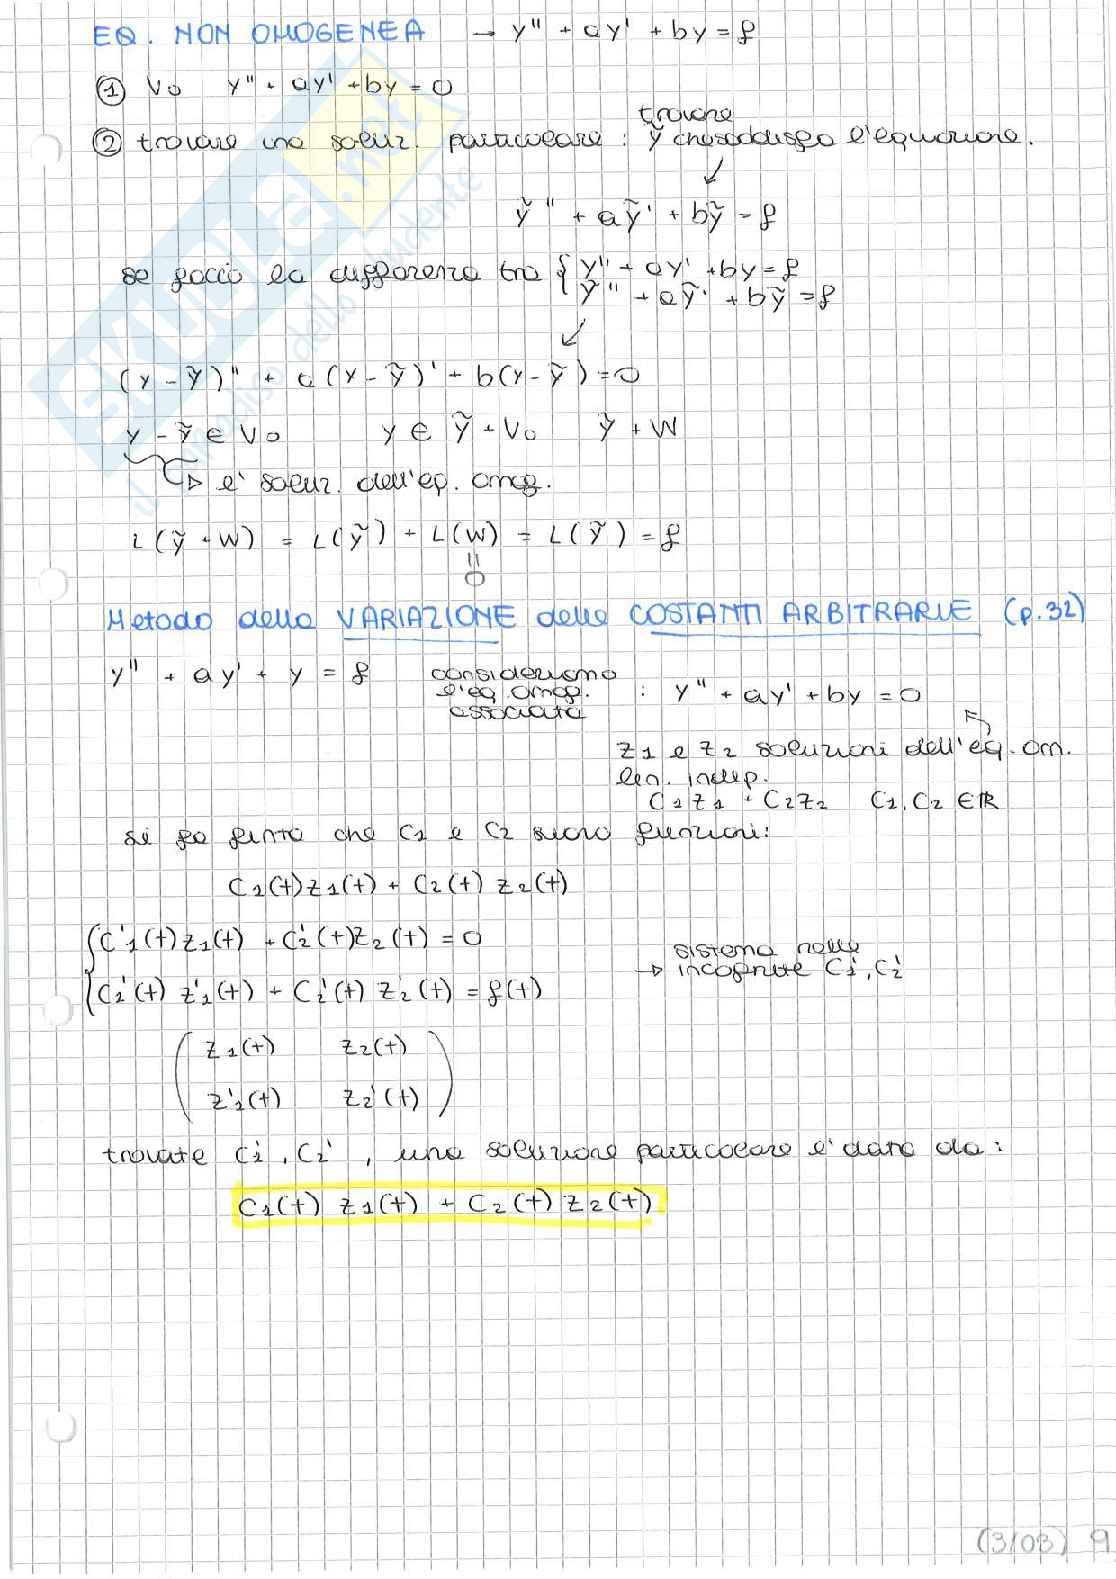 EQ. NON OMOGENEA → y'' + ay' + by = f
① V₀ y'' + ay' + by = 0
trovare
② trovare una soluz. particolare : ỹ che soddisfa l'equazione.
ỹ'' + aỹ' + bỹ = f
se faccio la differenza tra { y'' + ay' + by = f
ỹ'' + aỹ' + bỹ = f
(y - ỹ)'' + a(y - ỹ)' + b(y - ỹ) = 0
y - ỹ ∈ V₀ y ∈ ỹ + V₀ ỹ + W
è soluz. dell'eq. omog.
L(ỹ + W) = L(ỹ) + L(W) = L(ỹ) = f
=
0
Metodo della VARIAZIONE delle COSTANTI ARBITRARIE (p.32)
y'' + ay' + y = f consideriamo
l'eq. omog. : y'' + ay' + by = 0
associata
z1 e z2 soluzioni dell'eq. om.
lin. indep.
C1z1 + C2z2 C1, C2 ∈ ℝ
si fa finta che C1 e C2 siano funzioni:
C1(t)z1(t) + C2(t) z2(t)
{ C'1(t)z1(t) + C'2(t)z2(t) = 0
C'1(t) z'1(t) + C'2(t) z'2(t) = f(t)
sistema nelle
→ incognite C'1, C'2
z1(t) z2(t)
z'1(t) z2'(t)
trovate C'1, C2', una soluzione particolare è data da:
C1(t) z1(t) + C2(t) z2(t)
(3/03) 9
SKUOLA.net
il paradiso dello studente